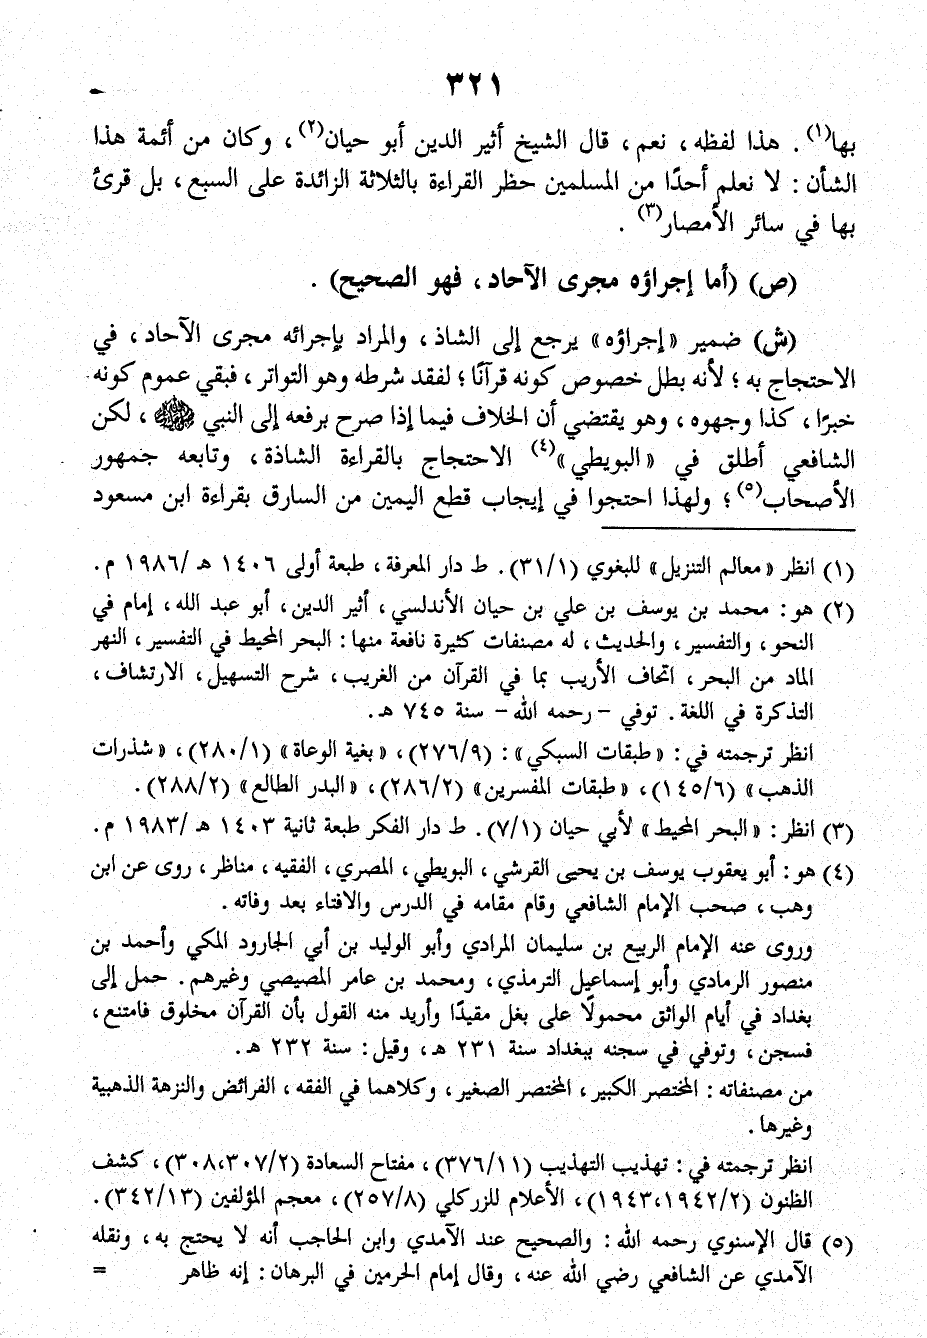 ٣٢١
بها(١) . هذا لفظه ، نعم ، قال الشيخ أثير الدين أبو حيان(٢) ، وكان من أئمة هذا
الشأن : لا نعلم أحدًا من المسلمين حظر القراءة بالثلاثة الزائدة على السبع ، بل قرئ
بها في سائر الأمصار(٣) .
(ص) (أما إجراؤه مجرى الآحاد ، فهو الصحيح) .
(ش) ضمير «إجراؤه» يرجع إلى الشاذ ، والمراد بإجرائه مجرى الآحاد ، في
الاحتجاج به ؛ لأنه بطل خصوص كونه قرآنًا ؛ لفقد شرطه وهو التواتر ، فبقي عموم كونه
خبرًا ، كذا وجهوه ، وهو يقتضي أن الخلاف فيما إذا صرح برفعه إلى النبي ﷺ ، لكن
الشافعي أطلق في «البويطي»(٤) الاحتجاج بالقراءة الشاذة ، وتابعه جمهور
الأصحاب(٥) ؛ ولهذا احتجوا في إيجاب قطع اليمين من السارق بقراءة ابن مسعود
(١) انظر «معالم التنزيل» للبغوي (٣١/١). ط دار المعرفة ، طبعة أولى ١٤٠٦ هـ /١٩٨٦ م.
(٢) هو : محمد بن يوسف بن علي بن حيان الأندلسي ، أثير الدين، أبو عبد الله، إمام في
النحو ، والتفسير ، والحديث ، له مصنفات كثيرة نافعة منها : البحر المحيط في التفسير ، النهر
الماد من البحر ، اتحاف الأريب بما في القرآن من الغريب ، شرح التسهيل ، الارتشاف ،
التذكرة في اللغة . توفي – رحمه الله – سنة ٧٤٥ هـ.
انظر ترجمته في : «طبقات السبكي» : (٢٧٦/٩)، «بغية الوعاة» (٢٨٠/١)، «شذرات
الذهب» (١٤٥/٦)، «طبقات المفسرين» (٢٨٦/٢)، «البدر الطالع» (٢٨٨/٢).
(٣) انظر : «البحر المحيط» لأبي حيان (٧/١). ط دار الفكر طبعة ثانية ١٤٠٣ هـ /١٩٨٣ م.
(٤) هو : أبو يعقوب يوسف بن يحيى القرشي ، البويطي ، المصري ، الفقيه ، مناظر ، روى عن ابن
وهب ، صحب الإمام الشافعي وقام مقامه في الدرس والافتاء بعد وفاته .
وروى عنه الإمام الربيع بن سليمان المرادي وأبو الوليد بن أبي الجارود المكي وأحمد بن
منصور الرمادي وأبو إسماعيل الترمذي ، ومحمد بن عامر المصيصي وغيرهم . حمل إلى
بغداد في أيام الواثق محمولًا على بغل مقيدًا وأريد منه القول بأن القرآن مخلوق فامتنع ،
فسجن ، وتوفي في سجنه ببغداد سنة ٢٣١ هـ ، وقيل : سنة ٢٣٢ هـ .
من مصنفاته : المختصر الكبير ، المختصر الصغير ، وكلاهما في الفقه ، الفرائض والنزهة الذهبية
وغيرها .
انظر ترجمته في : تهذيب التهذيب (٣٧٦/١١) ، مفتاح السعادة (٣٠٨،٣٠٧/٢) ، كشف
الظنون (١٩٤٣،١٩٤٢/٢) ، الأعلام للزركلي (٢٥٧/٨) ، معجم المؤلفين (٣٤٢/١٣) .
(٥) قال الإسنوي رحمه الله : والصحيح عند الآمدي وابن الحاجب أنه لا يحتج به ، ونقله
الآمدي عن الشافعي رضي الله عنه ، وقال إمام الحرمين في البرهان : إنه ظاهر =